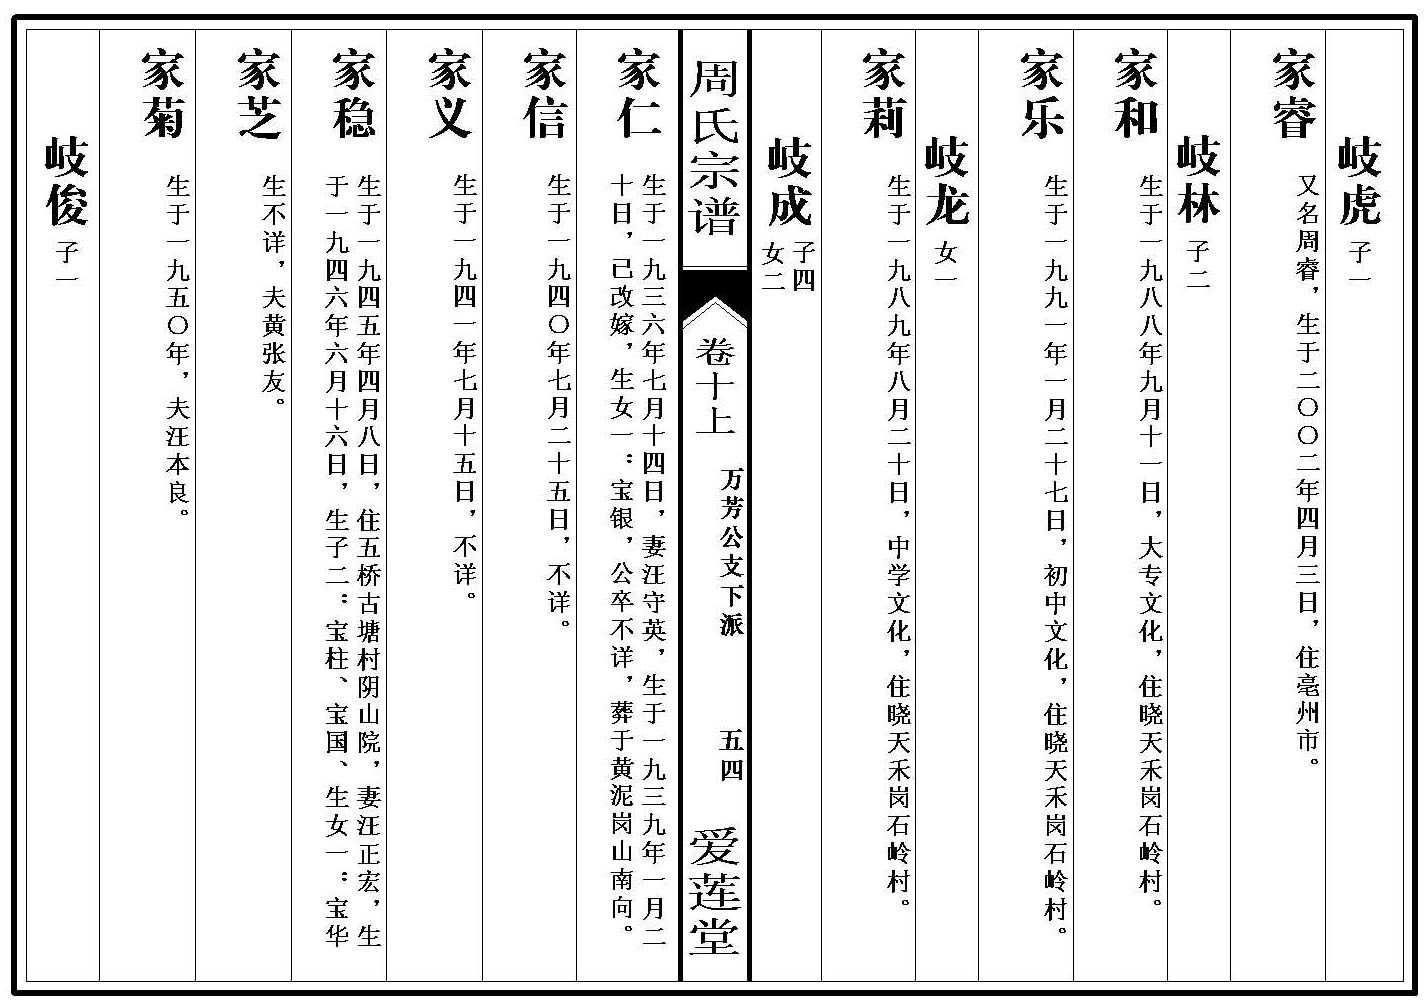 岐虎 子一
家睿 又名周睿，生于二〇〇二年四月三日，住亳州市。
岐林 子二
家和 生于一九八八年九月十一日，大专文化，住晓天禾岗石岭村。
家乐 生于一九九一年一月二十七日，初中文化，住晓天禾岗石岭村。
岐龙 女一
家莉 生于一九八九年八月二十日，中学文化，住晓天禾岗石岭村。
岐成 子四
女二
周氏宗谱
卷十上
万芳公支下派
五四
爱莲堂
家仁 生于一九三六年七月十四日，妻汪守英，生于一九三九年一月二
十日，己改嫁，生女一：宝银，公卒不详，葬于黄泥岗山南向。
家信 生于一九四〇年七月二十五日，不详。
家义 生于一九四一年七月十五日，不详。
家稳 生于一九四五年四月八日，住五桥古塘村阴山院，妻汪正宏，生
于一九四六年六月十六日，生子二：宝柱、宝国、生女一：宝华
家芝 生不详，夫黄张友。
家菊 生于一九五〇年，夫汪本良。
岐俊 子一